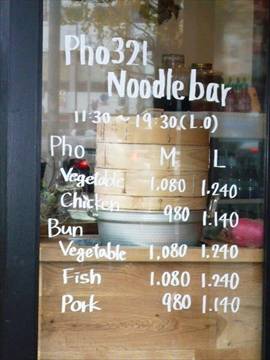 Pho321
Noodle bar
11:30～19:30(L.O)
Pho M L
Vegetable 1,080 1.240
Chicken 980 1.140
Bun
Vegetable 1,080 1.240
Fish 1.080 1.240
Pork 980 1.140